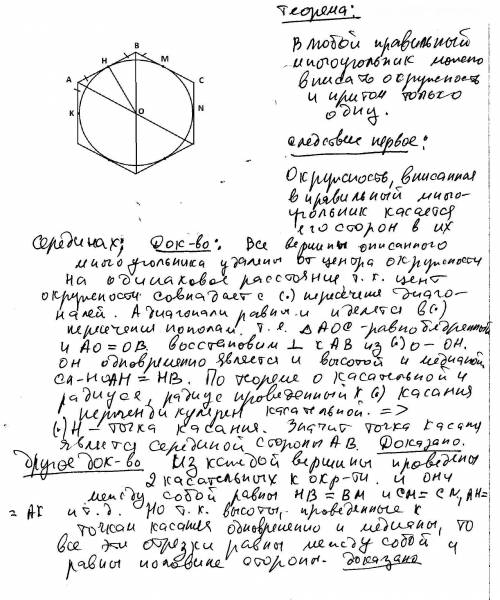 Теорема:
В любой правильный
многоугольник можно
вписать окружность
и притом только
одну.
Следствие первое:
Окружность, вписанная
в правильный много-
угольник касается
его сторон в их
серединах; Док-во: Все вершины описанного
многоугольника удалены от центра окружности
на одинаковое расстояние т.к. цент
окружности совпадает с (·) пересечения диаго-
налей. А диагонали равны и делятся в (·)
пересечения пополам. т.е. △AOC - равнобедренный
и AO = OB. восстановим ⊥ к AB из (·) O - OH.
OH одновременно является и высотой и медианой
AH = HB. По теореме о касательной и
радиусе, радиус проведенный к (·) касания
перпендикулярен касательной. =>
(·) H - точка касания. Значит точка касания
является серединой стороны AB. Доказано.
Другое док-во Из каждой вершины проведены
2 касательных к окр-ти. и они
между собой равны HB = BM и CM = CN, AH =
= AK и т.д. Но т.к. высоты, проведенные к
точкам касания одновременно и медианы, то
все эти отрезки равны между собой и
равны половине стороны. Доказано
B
H M
A C
K O N